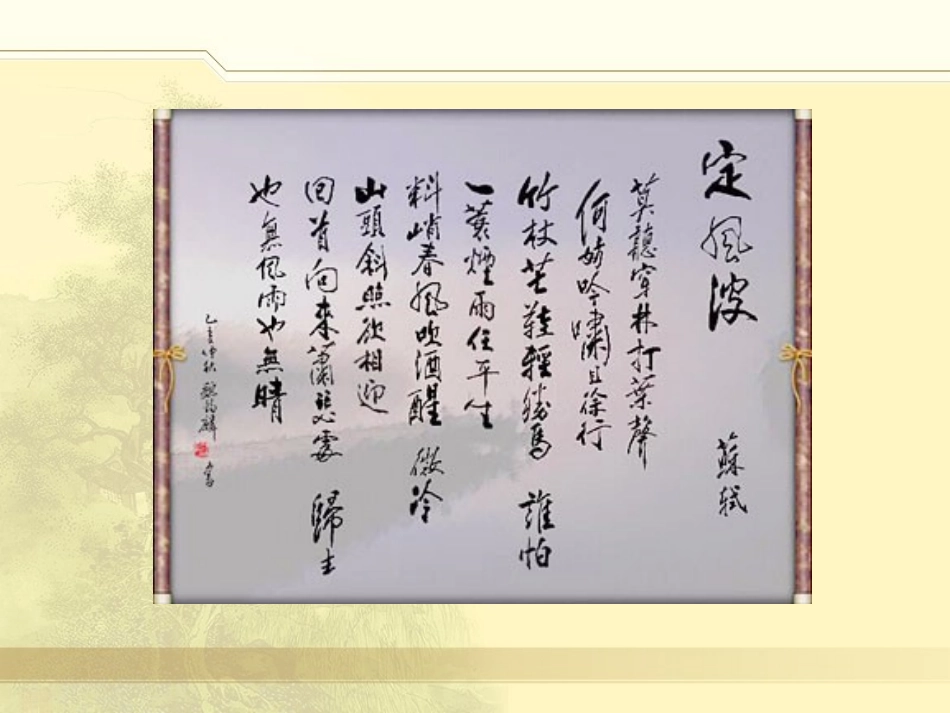 定風波 蘇軾
莫聽穿林打葉聲
何妨吟嘯且徐行
竹杖芒鞋輕勝馬 誰怕
一蓑煙雨任平生
料峭春風吹酒醒 微冷
山頭斜照欲相迎
回首向來蕭瑟處 歸去
也無風雨也無晴
亥仲秋 麟 書